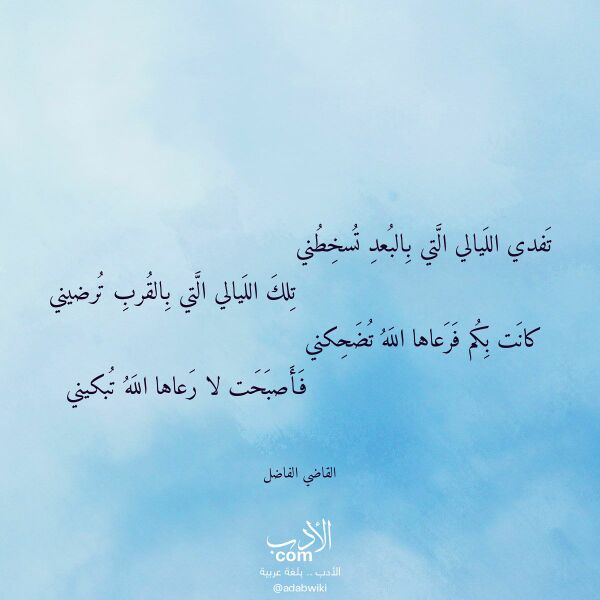 تَفدي اللَيالي الَّتي بِالبُعدِ تُسخِطُني
تِلكَ اللَيالي الَّتي بِالقُربِ تُرضيني
كانَت بِكُم فَرَعاها اللَهُ تُضَحِكني
فَأَصبَحَت لا رَعاها اللَهُ تُبكيني
القاضي الفاضل
الأدب
com
الأدب .. بلغة عربية
@adabwiki